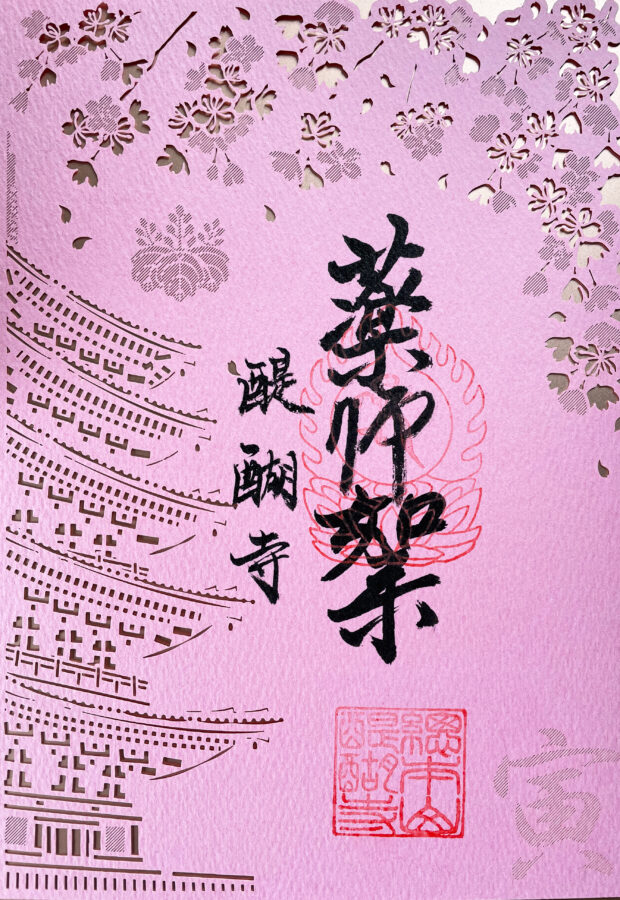 薬師如来
醍醐寺
總本山
醍醐寺
寅